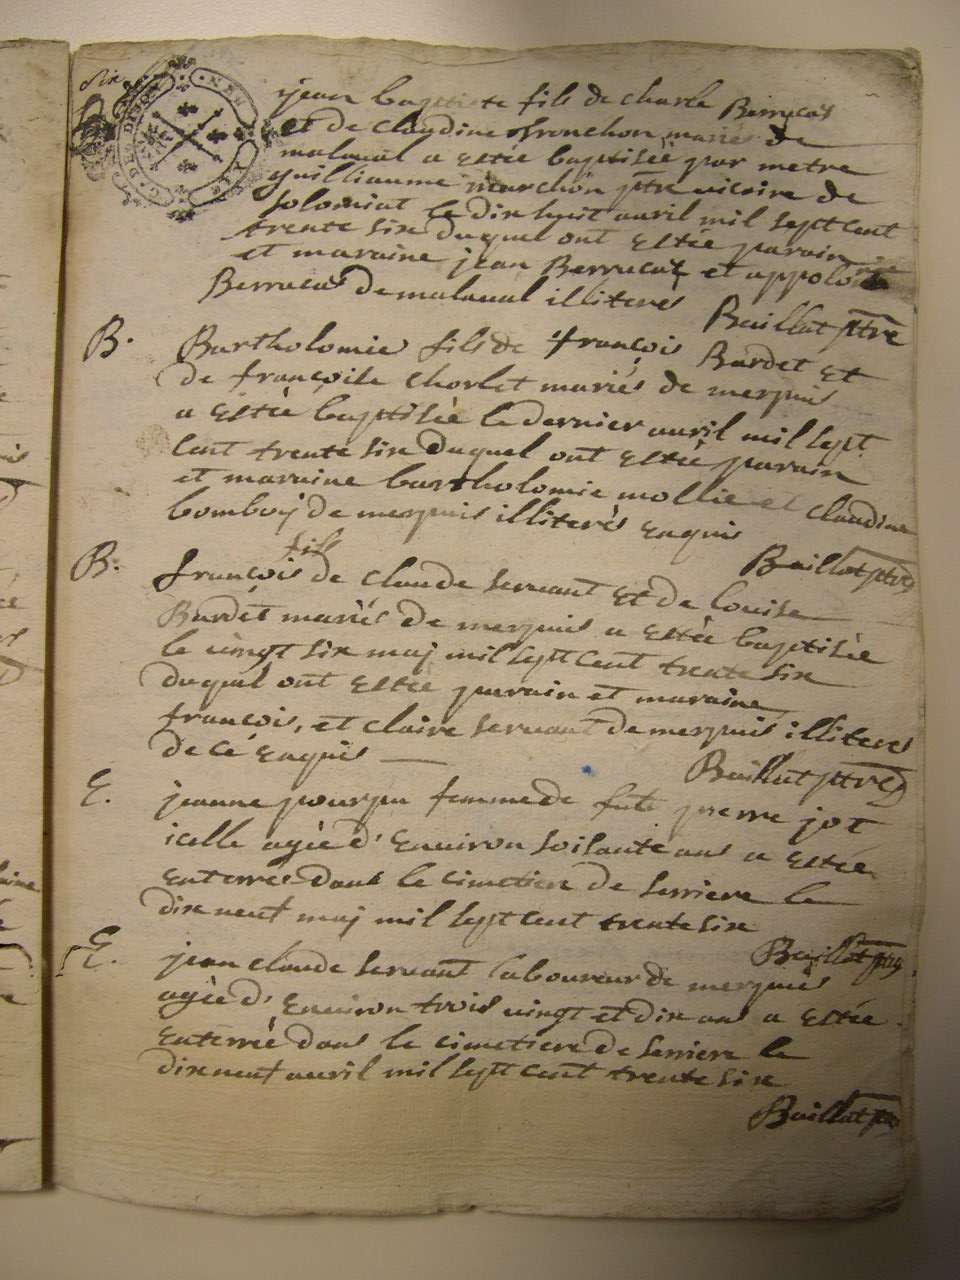 six
G. DE DIJON
jean baptiste fils de charle Berrucat
et de claudine Tronchon mariés de
malaval a estée baptisée par metre
guilliaume marchon ptre vicaire de
solomiat le dix huit auril mil sept cent
trente six duquel ont estée parain
et maraine jean Berrucat et appolonie
Berrucat de malaual illiterés
Baillat ptre
B. Bartholomie fils de françois Bardet et
de françoise chorlet mariés de merpuis
a estée baptisée le dernier auril mil sept
cent trente six duquel ont estée parain
et maraine bartholomie mollie et claudine
bomboÿ de merpuis illiterés enquis
Baillat ptre
B. françois fils de claude seruant et de louise
Bardet mariés de merpuis a estée baptisée
le vingt six maj mil sept cent trente six
duquel ont estée parain et maraine
françois, et claire seruant de merpuis illiteres
de ce enquis
Baillat ptre
E. jeanne pourpu femme de fut pierre jot
icelle agée d'enuiron soisante ans a estée
enterrée dans le cimetiere de serriere le
dix neuf maj mil sept cent trente six
Baillat ptre
E. jean claude seruant laboureur de merpuis
agée d'enuiron trois vingt et dix ans a estée
enterré dans le cimetiere de serriere le
dix neuf auril mil sept cent trente six
Baillat ptre